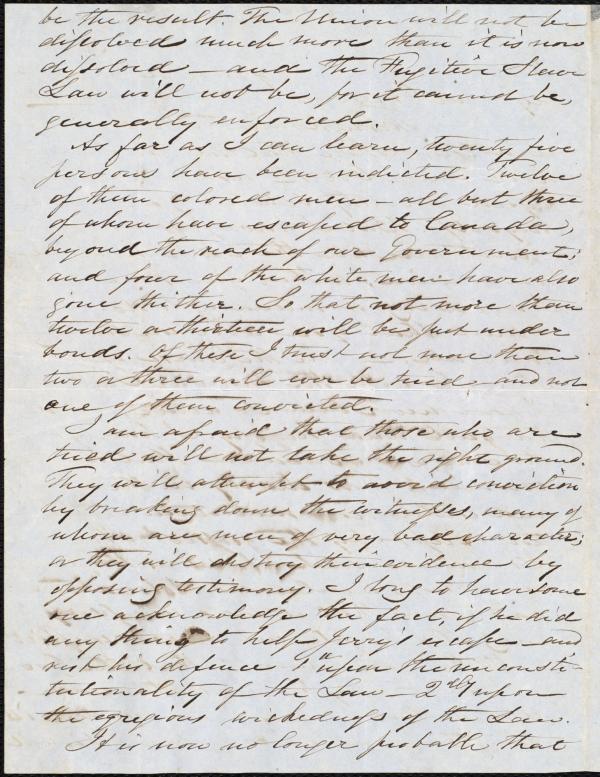 be the result. The Union will not be
dissolved much more than it is now
dissolved – and the Fugitive Slave
Law will not be, for it cannot be,
generally enforced.
As far as I can learn, twenty five
persons have been indicted. Twelve
of them colored men – all but three
of whom have escaped to Canada,
beyond the reach of our Government;
and four of the white men have also
gone thither. So that not more than
twelve or thirteen will be put under
bonds. Of these I trust not more than
two or three will ever be tried – and not
one of them convicted.
I am afraid that those who are
tried will not take the right ground.
They will attempt to avoid conviction
by breaking down the witnesses, many of
whom are men of very bad character;
or they will destroy their evidence by
opposing testimony. I long to have some
one acknowledge the fact, if he did
any thing to help Jerry's escape – and
rest his defence 1st upon the unconsti-
tutionality of the Law – 2dly upon
the egregious wickedness of the Law.
It is now no longer probable that